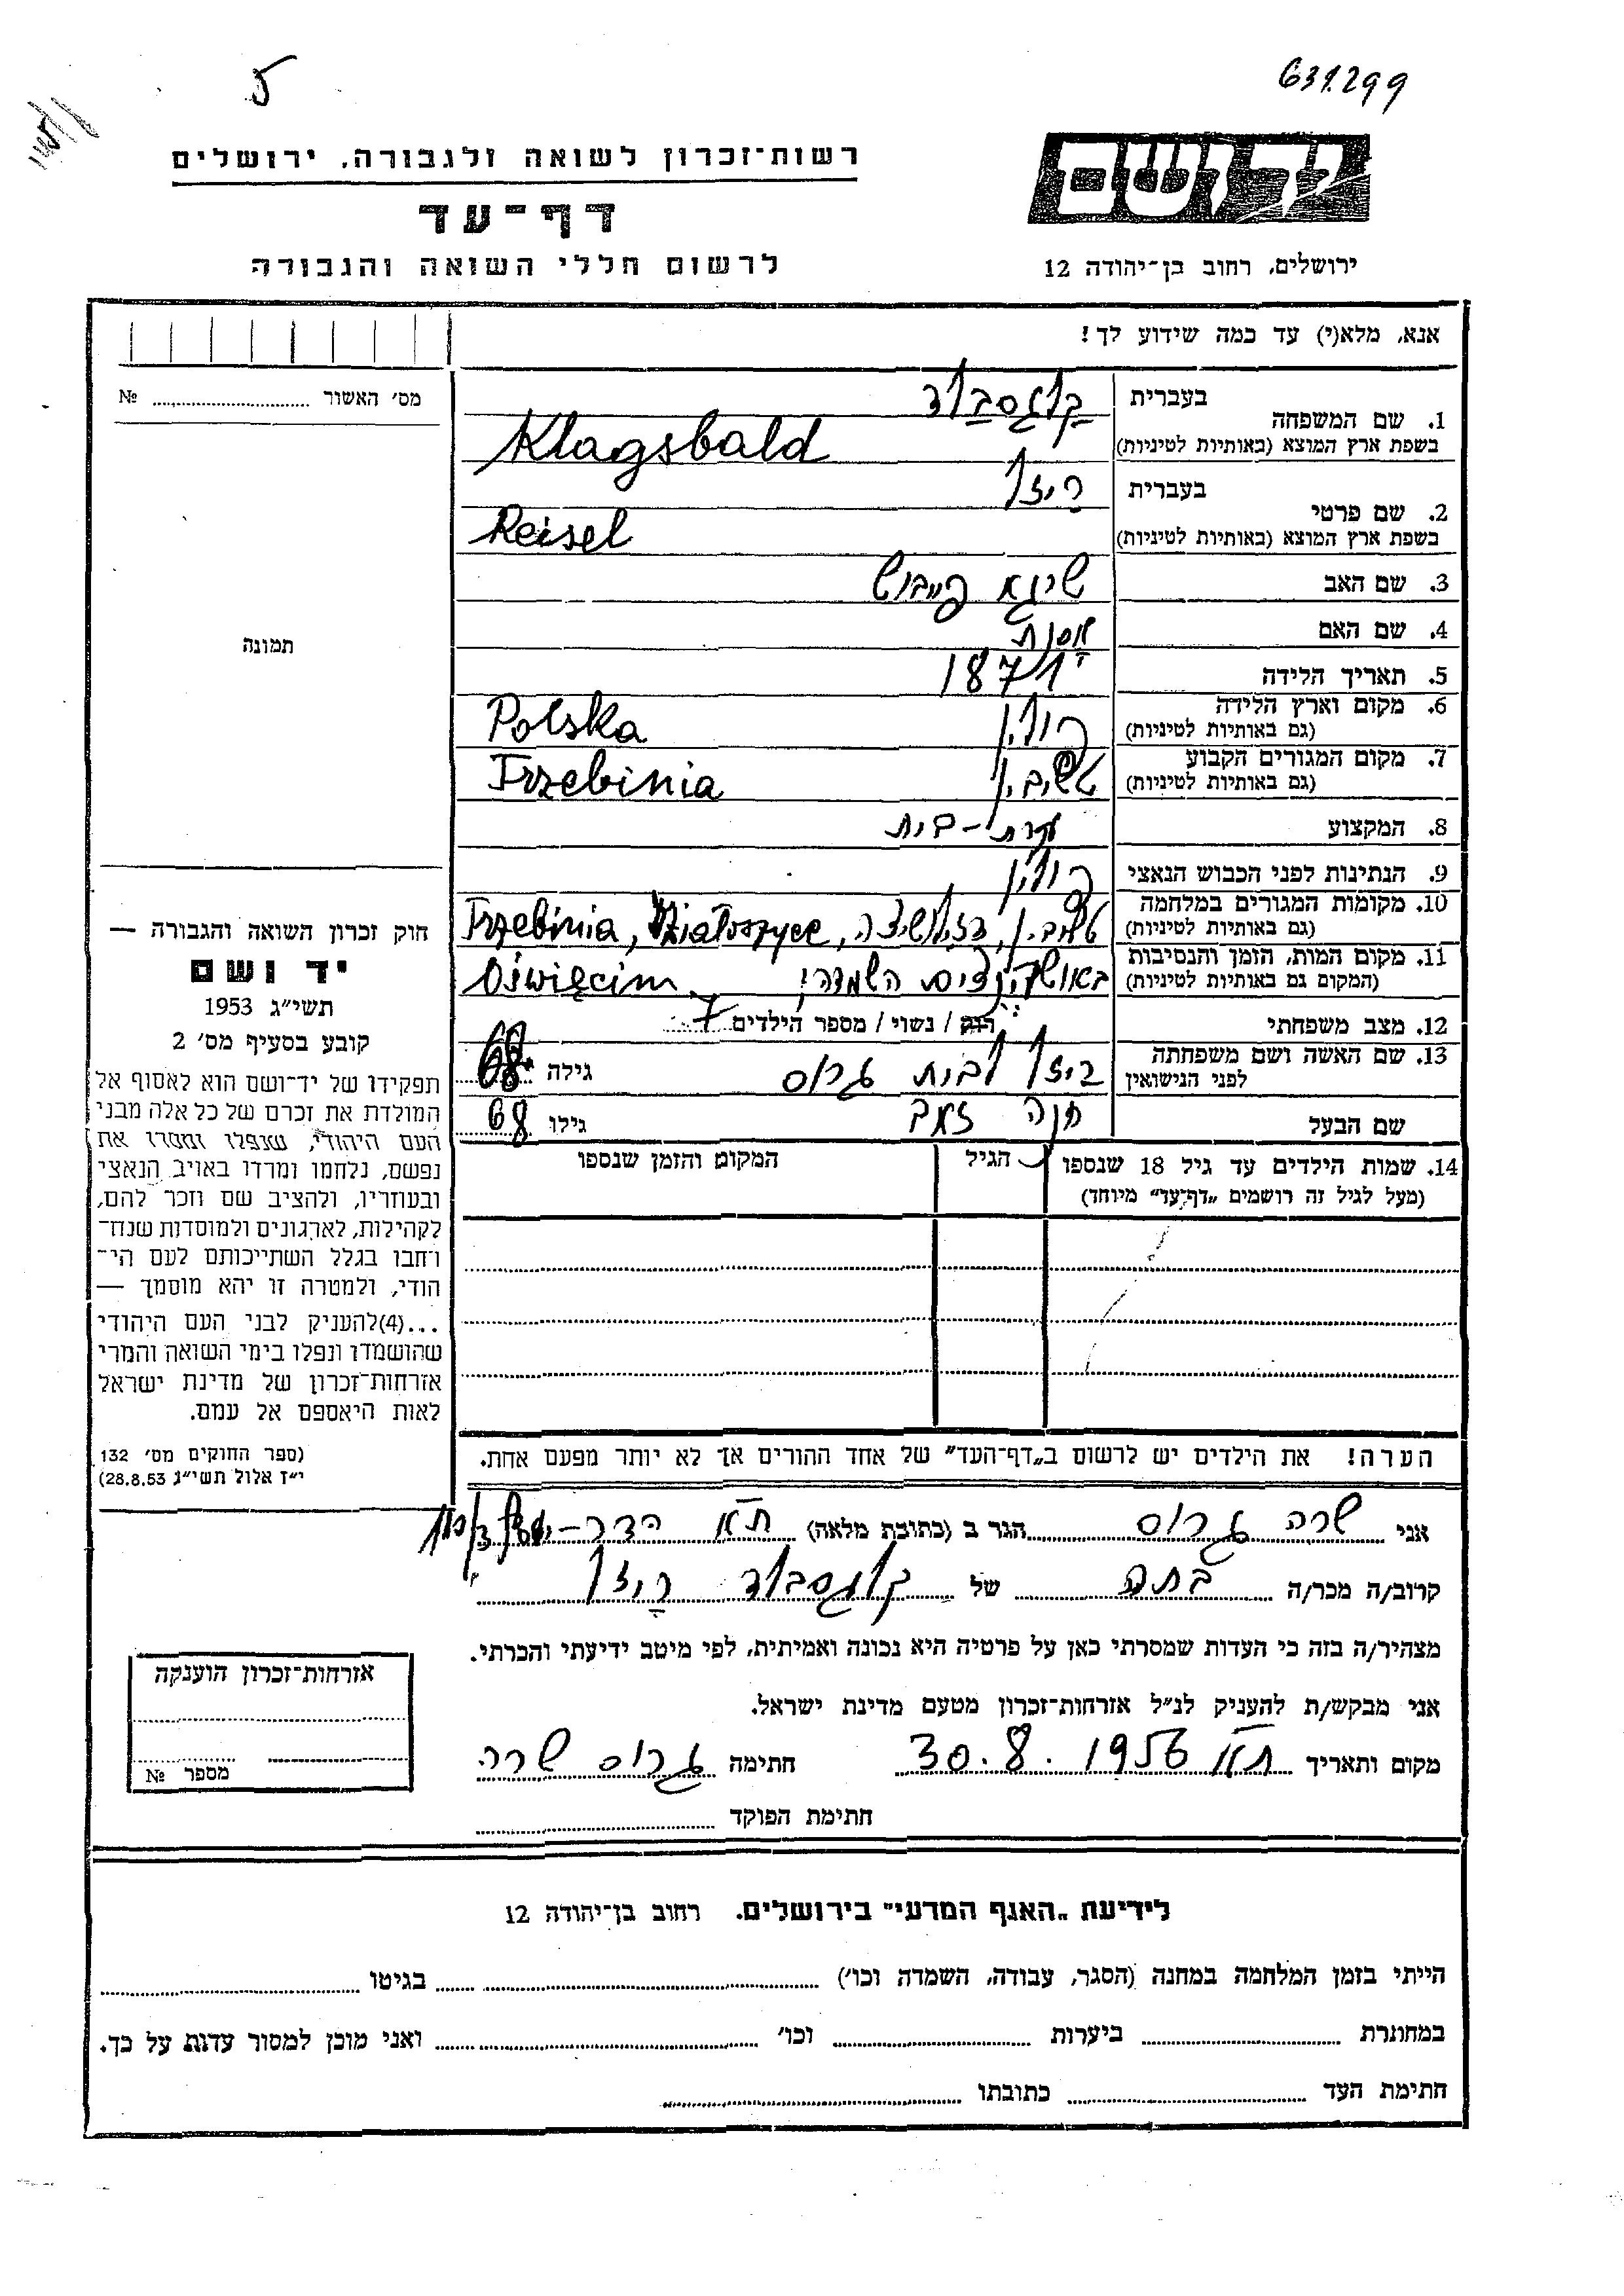 631299
רשות־זכרון לשואה ולגבורה, ירושלים
דף־עד
לרשום חללי השואה והגבורה
יד ושם
ירושלים, רחוב בן־יהודה 12
אנא, מלא(י) עד כמה שידוע לך!
מס׳ האשור № 
תמונה
1. שם המשפחה בעברית קלגסבלד
בשפת ארץ המוצא (באותיות לטיניות) Klagsbald
2. שם פרטי בעברית ריזל
בשפת ארץ המוצא (באותיות לטיניות) Reisel
3. שם האב שרגא פייבוש
4. שם האם אסנת
5. תאריך הלידה 1871
6. מקום וארץ הלידה (גם באותיות לטיניות) פולין Polska
7. מקום המגורים הקבוע (גם באותיות לטיניות) Trzebinia
8. המקצוע עקרת-בית
9. הנתינות לפני הכבוש הנאצי פולין
10. מקומות המגורים במלחמה (גם באותיות לטיניות) Trzebinia, Działoszyce
11. מקום המות, הזמן והנסיבות (המקום גם באותיות לטיניות) השמדה Oświęcim
12. מצב משפחתי רוק / נשוי / מספר הילדים 7
13. שם האשה ושם משפחתה לפני הנישואין ריזל לבית גרוס גילה 68
שם הבעל זאב גילו 68
14. שמות הילדים עד גיל 18 שנספו הגיל המקום והזמן שנספו
(מעל לגיל זה רושמים „דף־עד״ מיוחד)
הערה! את הילדים יש לרשום ב„דף־העד״ של אחד ההורים אך לא יותר מפעם אחת.
חוק זכרון השואה והגבורה —
יד ושם
תשי״ג 1953
קובע בסעיף מס׳ 2
תפקידו של יד־ושם הוא לאסוף אל
המולדת את זכרם של כל אלה מבני
העם היהודי, שנפלו ומסרו את
נפשם, נלחמו ומרדו באויב הנאצי
ובעוזריו, ולהציב שם וזכר להם,
לקהילות, לארגונים ולמוסדות שנח־
רבו בגלל השתייכותם לעם הי־
הודי, ולמטרה זו יהא מוסמך —
...(4)להעניק לבני העם היהודי
שהושמדו ונפלו בימי השואה והמרי
אזרחות־זכרון של מדינת ישראל
לאות היאספם אל עמם.
(ספר החוקים מס׳ 132
י״ז אלול תשי״ג 28.8.53)
אני שרה גרוס הגר ב (כתובת מלאה) ת״א הדר-יוסף
קרוב/ה מכר/ה בתה של קלגסבלד ריזל
מצהיר/ה בזה כי העדות שמסרתי כאן על פרטיה היא נכונה ואמיתית, לפי מיטב ידיעתי והכרתי.
אני מבקש/ת להעניק לנ״ל אזרחות־זכרון מטעם מדינת ישראל.
מקום ותאריך ת״א 30.8.1956 חתימה גרוס שרה
חתימת הפוקד
אזרחות־זכרון הוענקה
מספר №
לידיעת „האגף המדעי״ בירושלים. רחוב בן־יהודה 12
הייתי בזמן המלחמה במחנה (הסגר, עבודה, השמדה וכו׳) בגיטו
במחתרת ביערות וכו׳ ואני מוכן למסור עדות על כך.
חתימת העד כתובתו